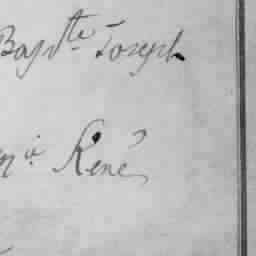 Bapᵗᵗᵉ Joseph
René